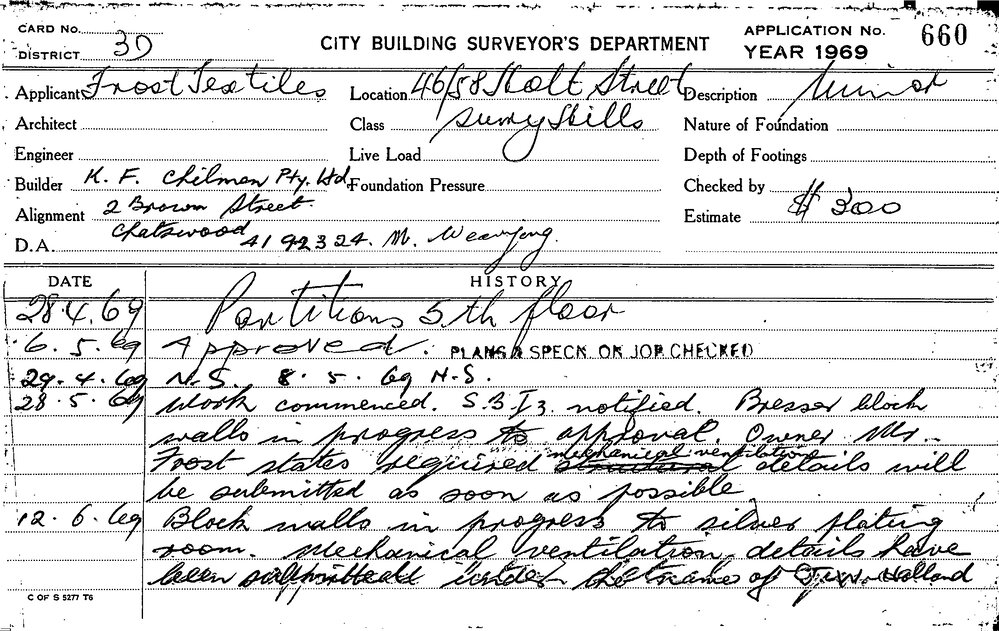 CARD No.
DISTRICT 3D
CITY BUILDING SURVEYOR'S DEPARTMENT
APPLICATION No. 660
YEAR 1969
Applicant Frost Textiles Location 46/58 Holt Street Description Minor
Architect Class Surry Hills Nature of Foundation
Engineer Live Load Depth of Footings
Builder K. F. Chilman Pty. Ltd. Foundation Pressure Checked by
Alignment 2 Brown Street. Estimate $ 300
Chatswood
D.A. 4192324. M.
DATE HISTORY
28.4.69 Partitions 5th floor
6.5.69 Approved. PLANS & SPECN. ON JOB CHECKED
29.4.69 N.S. 8.5.69 N.S.
28.5.69 Work commenced. notified. Besser block
walls in progress to approval. Owner Mr.
Frost states required mechanical ventilation details will
be submitted as soon as possible
12.6.69 Block walls in progress to silver plating
room. Mechanical ventilation details have
been submitted under the name of Holland
C OF S 5277 T6